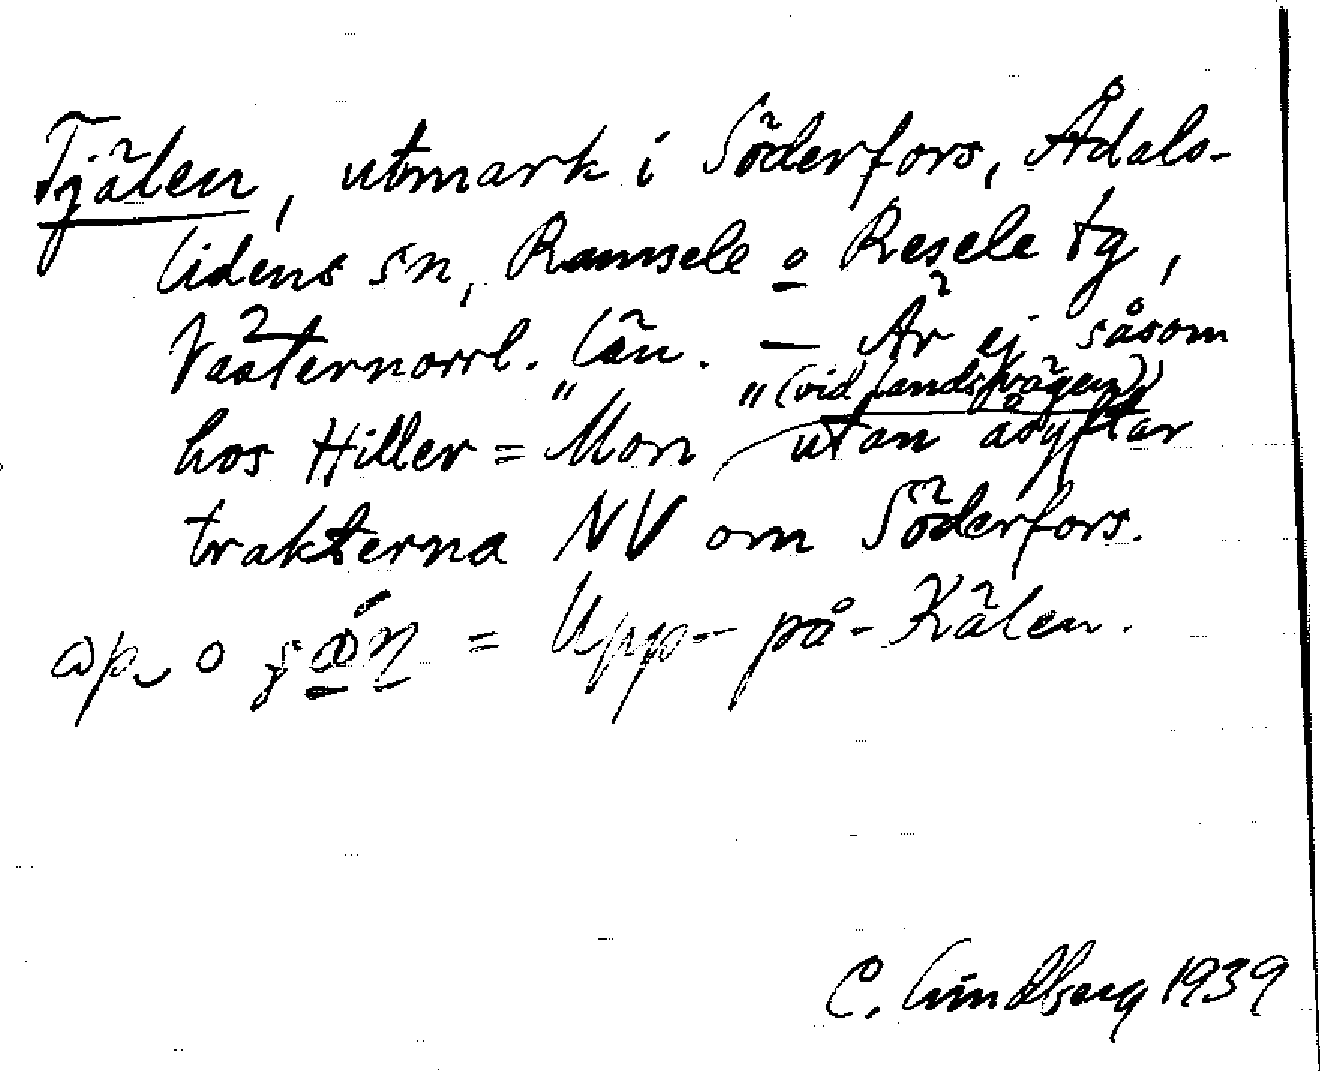 Tjälen, utmark i Söderfors, Ådals-
lidens sn, Ramsele o Resele tg,
Västernorrl. län. — Är ej såsom
hos Hiller = "Mon" (vid landsvägen) utan åsyftar
trakterna NV om Söderfors.
= Upp-på-Kälen.
C. Lindberg 1939